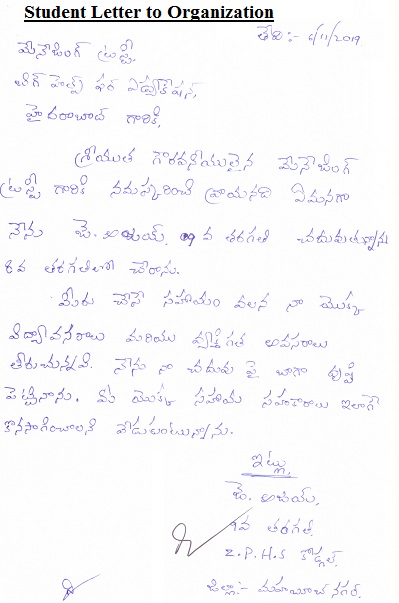 Student Letter to Organization
తేది:- 6/11/2019
మేనేజింగ్ ట్రస్టీ,
టీగ్ హెల్ప్ ఫర్ ఎడ్యుకేషన్,
హైదరాబాద్ గారికి,
శ్రీయుత గౌరవనీయులైన మేనేజింగ్
ట్రస్టీ గారికి నమస్కరించి వ్రాయునది ఏమనగా
నేను చే. అజయ్, 09 వ తరగతి చదువుతున్నాను
8వ తరగతిలో చేరాను.
మీరు చేసే సహాయం వలన నా యొక్క
విద్యావసరాలు మరియు వ్యక్తిగత అవసరాలు
తీరుచున్నవి. నేను నా చదువు పై బాగా దృష్టి
పెట్టినాను. మీ యొక్క సహాయ సహకారాలు ఇలాగే
కొనసాగించాలని కోరుకుంటున్నాను.
ఇట్లు,
చే. అజయ్,
9వ తరగతి,
Z.P.H.S కోడ్గల్,
జిల్లా:- మహబూబ్ నగర్.